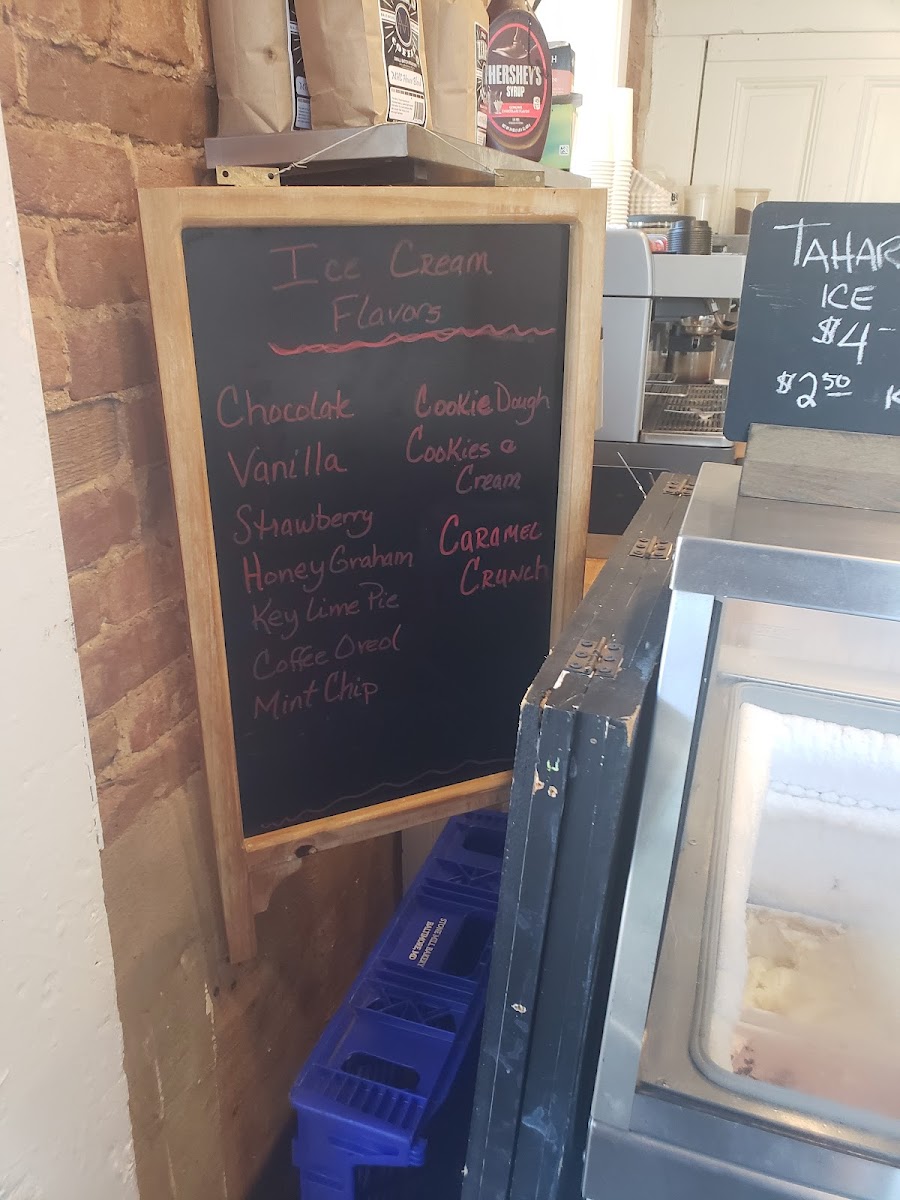 HERSHEY'S
SYRUP
Ice Cream
Flavors
Chocolate
Vanilla
Strawberry
Honey Graham
Key Lime Pie
Coffee Oreo
Mint Chip
Cookie Dough
Cookies &
Cream
CARAMEL
CRUNCH
TAHAR
ICE
$4
$2.50 K
STONE MILL BAKERY
BALTIMORE, MD